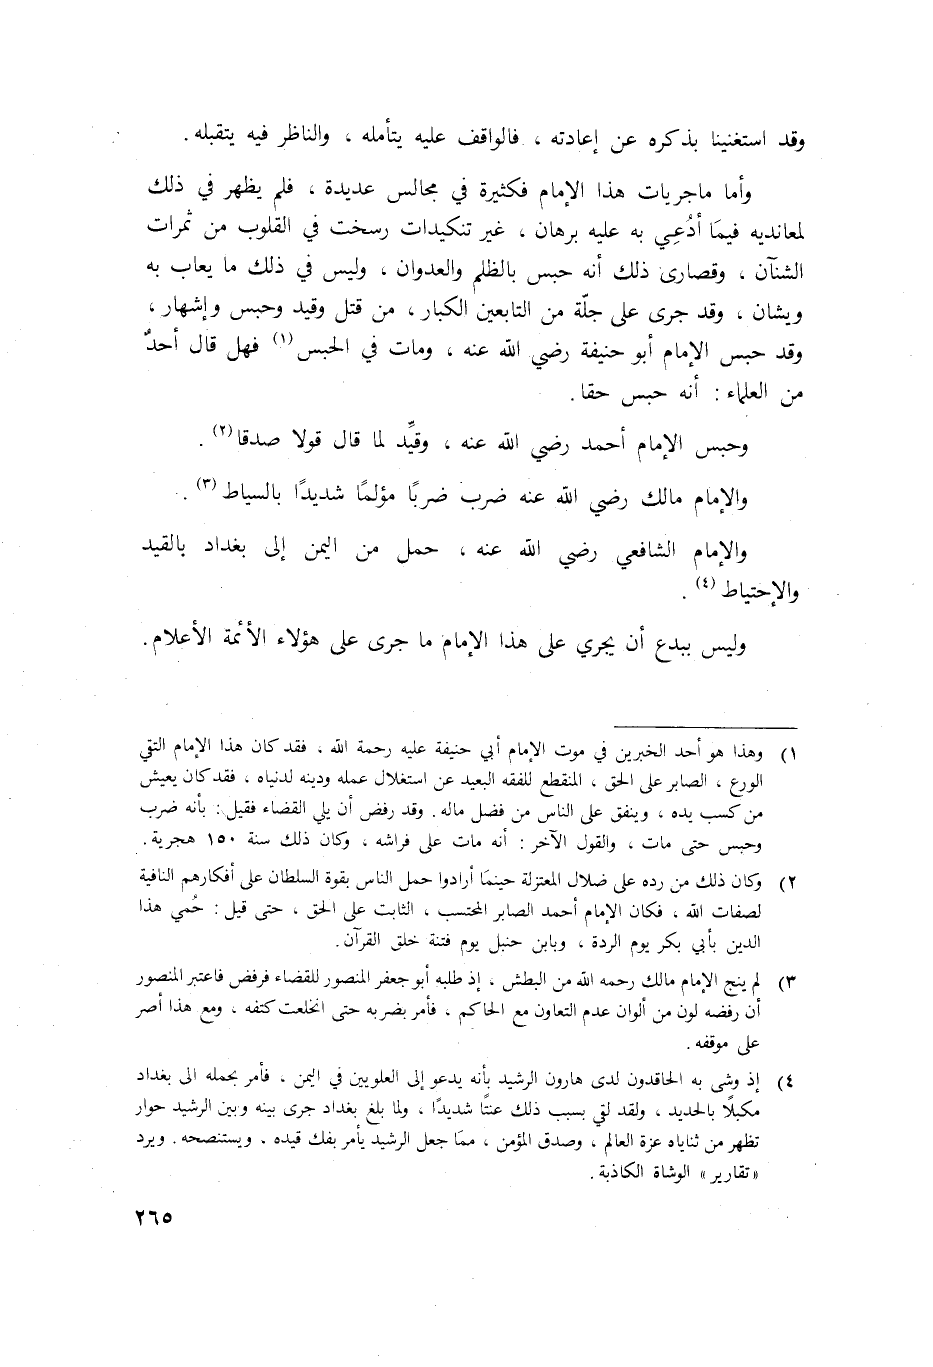 وقد استغنينا بذكره عن إعادته ، فالواقف عليه يتأمله ، والناظر فيه يتقبله .
وأما ماجريات هذا الإمام فكثيرة في مجالس عديدة ، فلم يظهر في ذلك
لمعانديه فيمَا أدُعِي به عليه برهان ، غير تنكيدات رسخت في القلوب من ثمرات
الشنآن ، وقصارى ذلك أنه حبس بالظلم والعدوان ، وليس في ذلك ما يعاب به
ويشان ، وقد جرى على جلّة من التابعين الكبار ، من قتل وقيد وحبس وإشهار ،
وقد حبس الإمام أبو حنيفة رضي الله عنه ، ومات في الحبس (١) فهل قال أحدٌ
من العلماء : أنه حبس حقا .
وحبس الإمام أحمد رضي الله عنه ، وقيِّد لما قال قولا صدقا (٢) .
والإمام مالك رضي الله عنه ضرب ضربًا مؤلمًا شديدًا بالسياط (٣) .
والإمام الشافعي رضي الله عنه ، حمل من اليمن إلى بغداد بالقيد
والإحتياط (٤) .
وليس ببدع أن يجري على هذا الإمام ما جرى على هؤلاء الأئمة الأعلام .
١) وهذا هو أحد الخبرين في موت الإمام أبي حنيفة عليه رحمة الله ، فقد كان هذا الإمام التقي
الورع ، الصابر على الحق ، المنقطع للفقه البعيد عن استغلال عمله ودينه لدنياه ، فقد كان يعيش
من كسب يده ، وينفق على الناس من فضل ماله . وقد رفض أن يلي القضاء فقيل : بأنه ضرب
وحبس حتى مات ، والقول الآخر : أنه مات على فراشه ، وكان ذلك سنة ١٥٠ هجرية .
٢) وكان ذلك من رده على ضلال المعتزلة حينمَا أرادوا حمل الناس بقوة السلطان على أفكارهم النافية
لصفات الله ، فكان الإمام أحمد الصابر المحتسب ، الثابت على الحق ، حتى قيل : حُمي هذا
الدين بأبي بكر يوم الردة ، وبابن حنبل يوم فتنة خلق القرآن .
٣) لم ينج الإمام مالك رحمه الله من البطش ، إذ طلبه أبو جعفر المنصور للقضاء فرفض فاعتبر المنصور
أن رفضه لون من ألوان عدم التعاون مع الحاكم ، فأمر بضربه حتى انخلعت كتفه ، ومع هذا أصر
على موقفه .
٤) إذ وشى به الحاقدون لدى هارون الرشيد بأنه يدعو إلى العلويين في اليمن ، فأمر بحمله الى بغداد
مكبلًا بالحديد ، ولقد لقي بسبب ذلك عنتًا شديدًا ، ولما بلغ بغداد جرى بينه وبين الرشيد حوار
تظهر من ثناياه عزة العالم ، وصدق المؤمن ، ممَا جعل الرشيد يأمر بفك قيده . ويستنصحه . ويرد
« تقارير » الوشاة الكاذبة .
٢٦٥